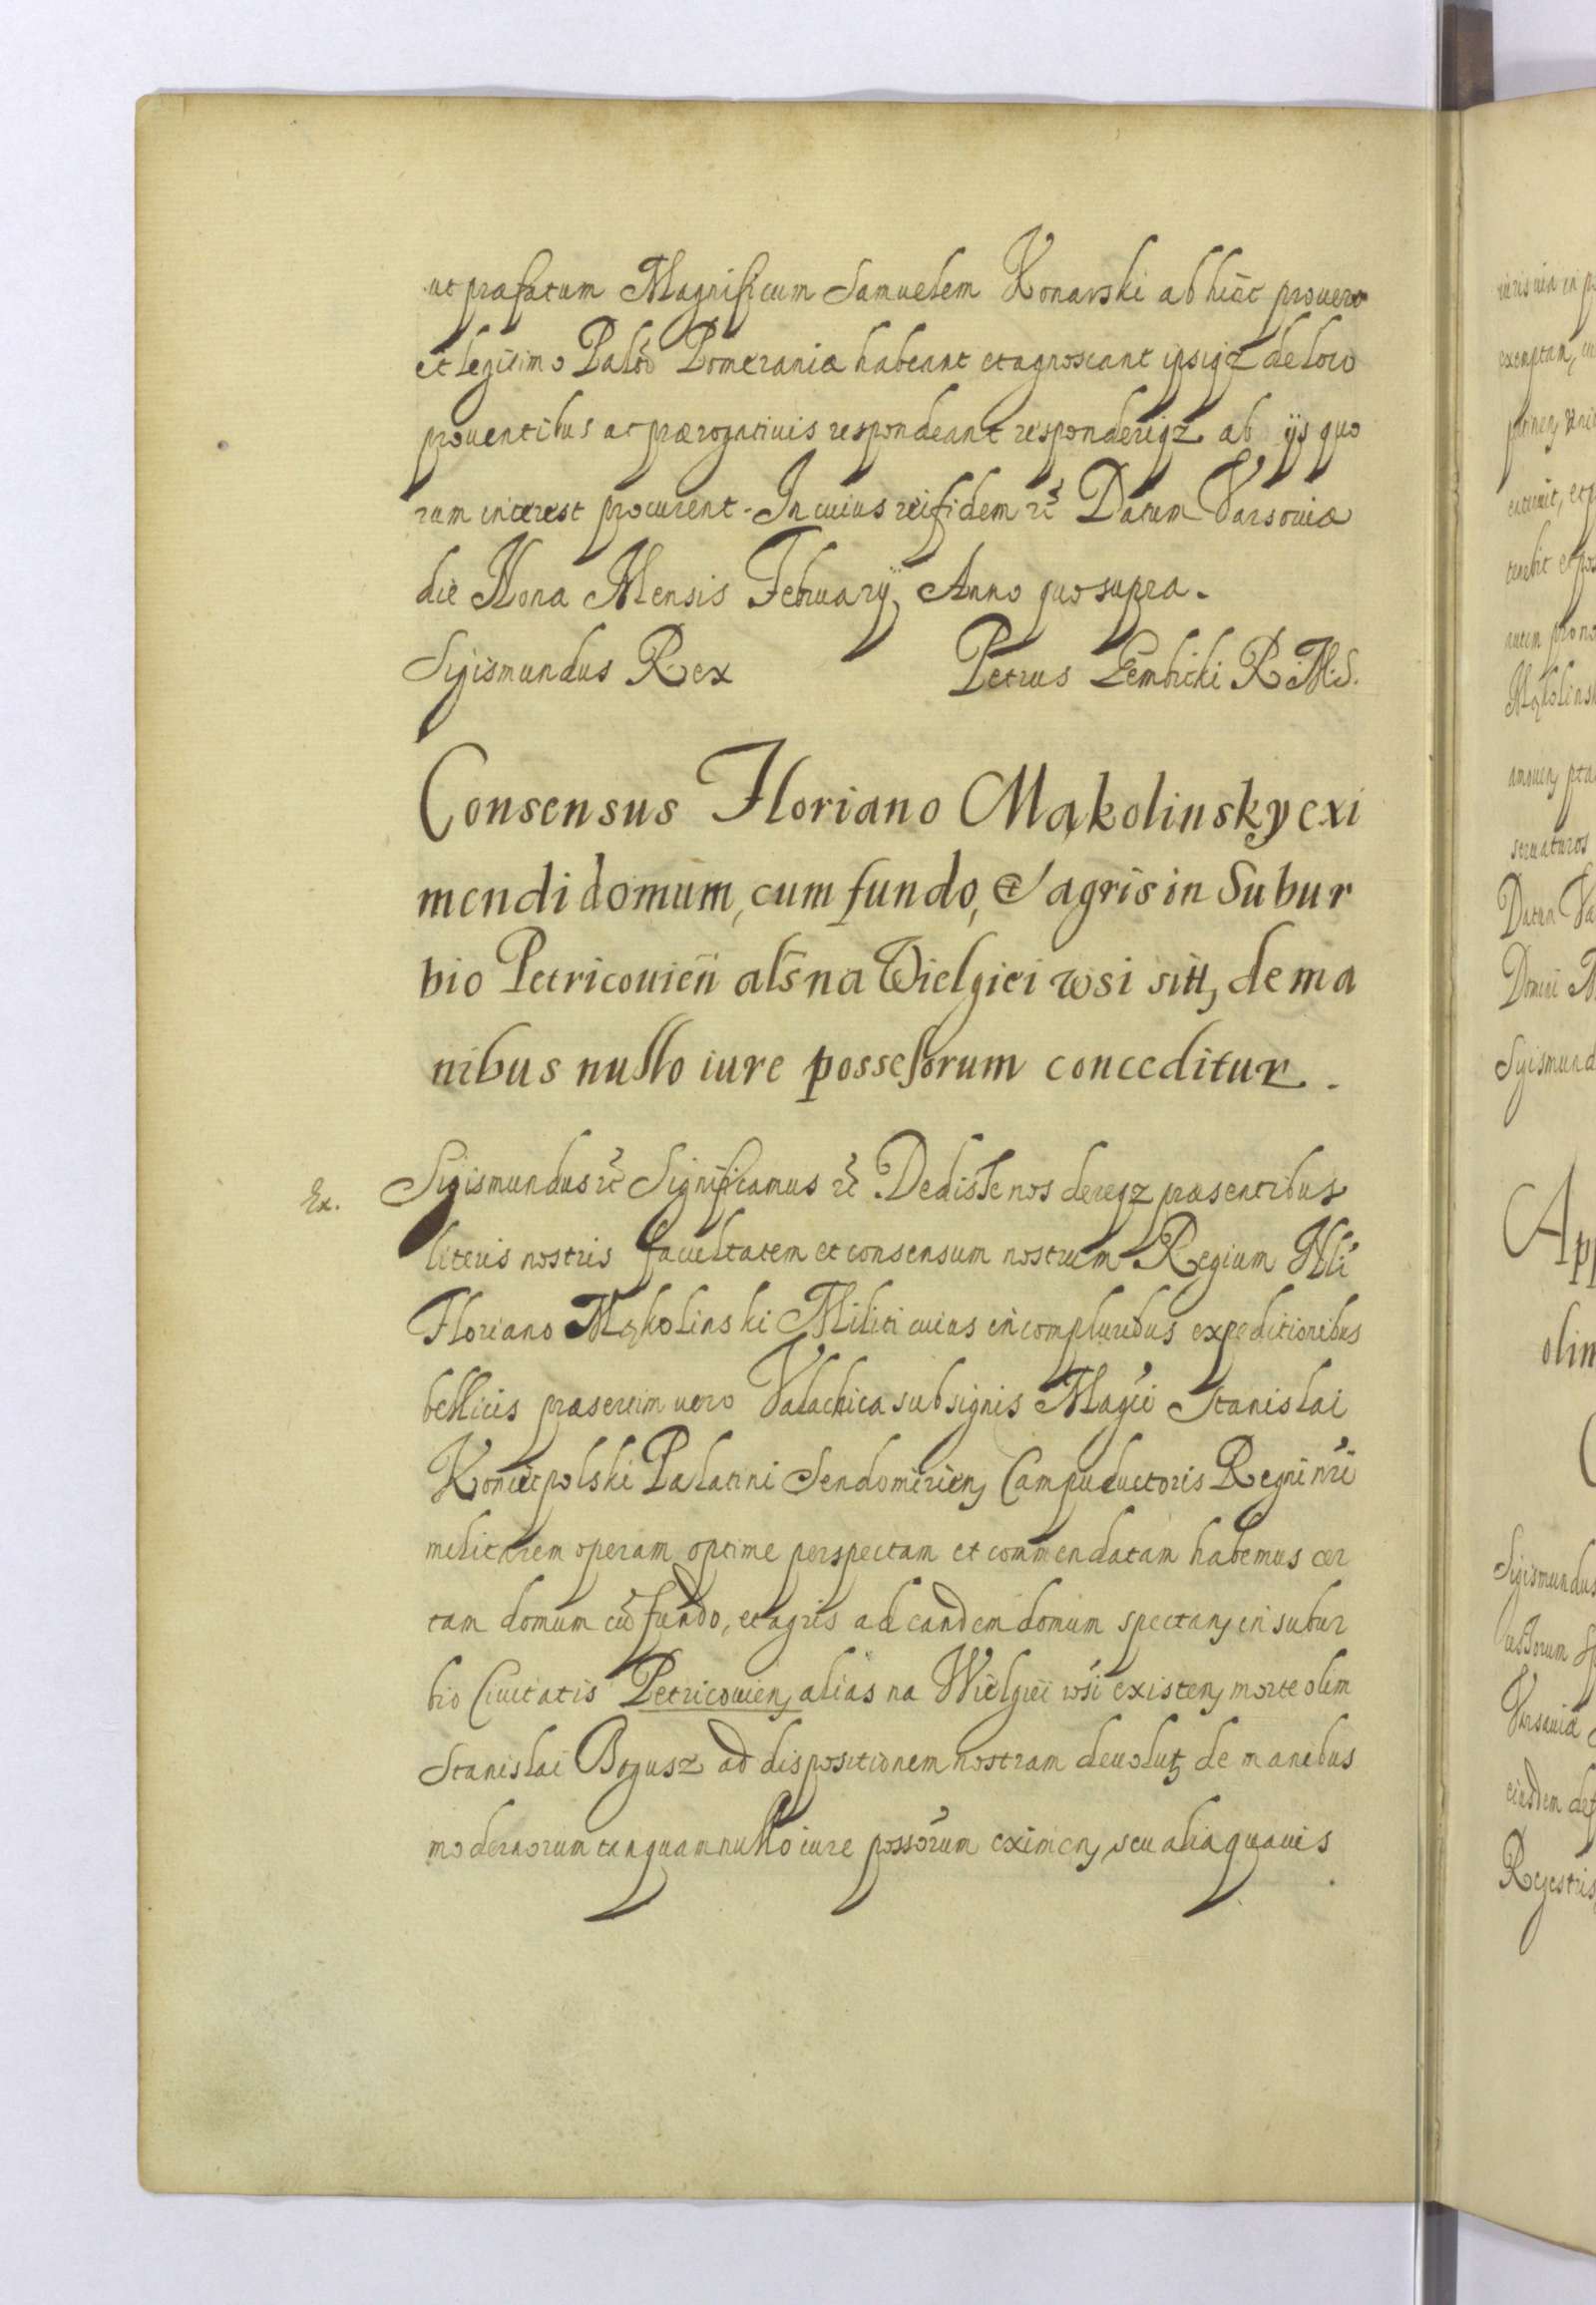 ut præfatum Magnificum Samuelem Konarski ab hinc pro vero
et legitimo Palño Pomeraniæ habeant et agnoscant ipsiqz de loco
prouentibus ac prærogatiuis respondeant responderiqz ab ijs quo
rum interest procurent. In cuius rei fidem etc Datum Varsouiæ
die Nona Mensis February Anno quo supra.
Sigismundus Rex Petrus Gembicki R.M.S.
Consensus Floriano Mąkolinsky exi
mendi domum, cum fundo, et agris in Subur
bio Petricouień als na Wielgiei wsi sitt, de ma
nibus nullo iure possessorum conceditur.
Ex. Sigismundus etc Significamus etc Dedisse nos dereqz præsentibus
literis nostris facultatem et consensum nostrum Regium Nbli
Floriano Mąkolinski Militi cuius in compluribus expeditionibus
bellicis præsertim vero Valachica sub signis Magci Stanislai
Koniecpolski Palatini Sendomirien, Campiductoris Regni nri
militarem operam optime perspectam et commendatam habemus cer
tam domum cũ fundo, et agris ad eandem domum spectan, in subur
bio Ciuitatis Petricouien, alias na Wielgiei wsi existen, morte olim
Stanislai Bogusz ad dispositionem nostram deuolut, de manibus
modernorum tanquam nullo iure possorum eximen, seu alia quauis